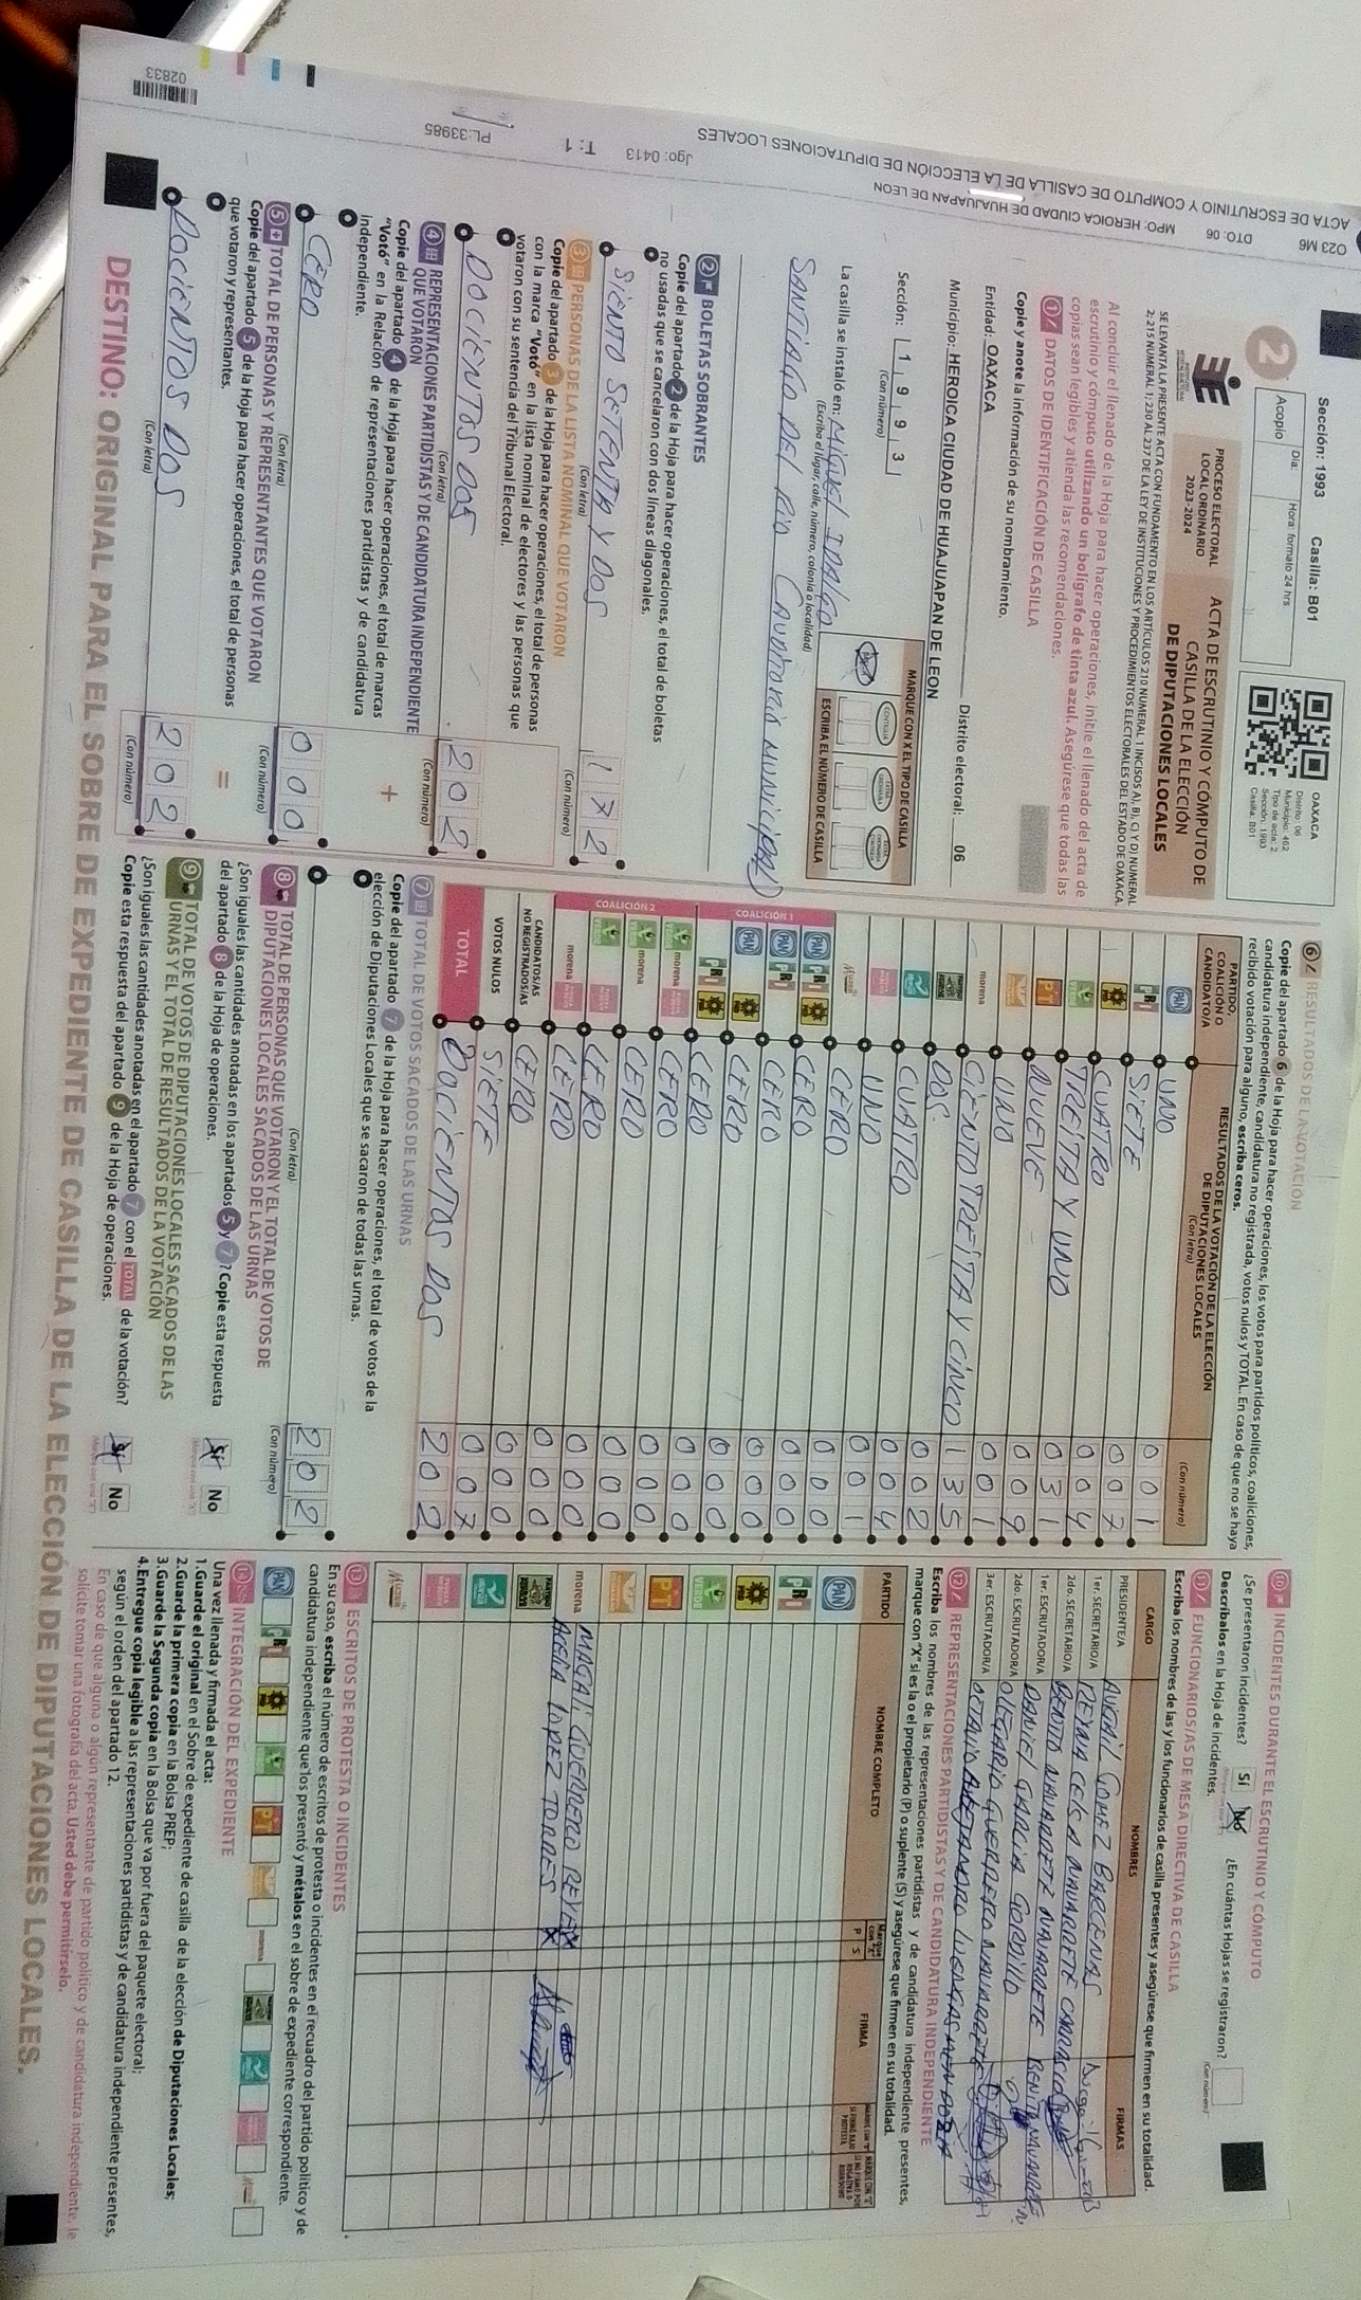 ACTA DE ESCRUTINIO Y COMPUTO DE CASILLA DE LA ELECCIÓN DE DIPUTACIONES LOCALES
O23 M6 DTO: 06 MPO: HEROICA CIUDAD DE HUAJUAPAN DE LEON
Jgo: 0413 T: 1 PL:33985
02833
Sección: 1993 Casilla: B01
2
Día: Hora: formato 24 hrs
Acopio
OAXACA
Distrito: 06
Municipio: 462
Tipo de acta: 2
Sección: 1993
Casilla: B01
PROCESO ELECTORAL
LOCAL ORDINARIO
2023-2024
ACTA DE ESCRUTINIO Y CÓMPUTO DE
CASILLA DE LA ELECCIÓN
DE DIPUTACIONES LOCALES
SE LEVANTA LA PRESENTE ACTA CON FUNDAMENTO EN LOS ARTÍCULOS 210 NUMERAL 1 INCISOS A), B), C) Y D) NUMERAL
2; 215 NUMERAL 1; 230 AL 237 DE LA LEY DE INSTITUCIONES Y PROCEDIMIENTOS ELECTORALES DEL ESTADO DE OAXACA.
Al concluir el llenado de la Hoja para hacer operaciones, inicie el llenado del acta de
escrutinio y cómputo utilizando un bolígrafo de tinta azul. Asegúrese que todas las
copias sean legibles y atienda las recomendaciones.
1 DATOS DE IDENTIFICACIÓN DE CASILLA
Copie y anote la información de su nombramiento.
Entidad: OAXACA Distrito electoral: 06
Municipio: HEROICA CIUDAD DE HUAJUAPAN DE LEON
Sección: 1 9 9 3
(Con número)
MARQUE CON X EL TIPO DE CASILLA
ESCRIBA EL NÚMERO DE CASILLA
La casilla se instaló en: MIGUEL IDALGO
(Escriba el lugar, calle, número, colonia o localidad)
SANTIAGO DEL RIO
MUNICIPAL)
2 BOLETAS SOBRANTES
Copie del apartado 2 de la Hoja para hacer operaciones, el total de boletas
no usadas que se cancelaron con dos líneas diagonales.
SIENTO SETENTA Y DOS 1 7 2
(Con letra) (Con número)
3 PERSONAS DE LA LISTA NOMINAL QUE VOTARON
Copie del apartado 3 de la Hoja para hacer operaciones, el total de personas
con la marca "Votó" en la lista nominal de electores y las personas que
votaron con su sentencia del Tribunal Electoral.
DOCIENTOS DOS 2 0 2
(Con letra) (Con número)
4 REPRESENTACIONES PARTIDISTAS Y DE CANDIDATURA INDEPENDIENTE
QUE VOTARON
Copie del apartado 4 de la Hoja para hacer operaciones, el total de marcas
"Votó" en la Relación de representaciones partidistas y de candidatura
independiente.
+
CERO 0 0 0
(Con letra) (Con número)
5 TOTAL DE PERSONAS Y REPRESENTANTES QUE VOTARON
Copie del apartado 5 de la Hoja para hacer operaciones, el total de personas
que votaron y representantes.
=
DOCIENTOS DOS 2 0 2
(Con letra) (Con número)
6 RESULTADOS DE LA VOTACIÓN
Copie del apartado 6 de la Hoja para hacer operaciones, los votos para partidos políticos, coaliciones,
candidatura independiente, candidatura no registrada, votos nulos y TOTAL. En caso de que no se haya
recibido votación para alguno, escriba ceros.
PARTIDO, COALICIÓN O CANDIDATO/A
RESULTADOS DE LA VOTACIÓN DE LA ELECCIÓN DE DIPUTACIONES LOCALES
(Con letra) (Con número)
PAN UNO 0 0 1
PRI SIETE 0 0 7
PRD CUATRO 0 0 4
VERDE TREITA Y UNO 0 3 1
PT NUEVE 0 0 9
UNO 0 0 1
morena CIENTO TREITA Y CINCO 1 3 5
DOS. 0 0 2
CUATRO 0 0 4
UNO 0 0 1
CERO 0 0 0
COALICIÓN 1
PAN PRI PRD CERO 0 0 0
PAN PRI CERO 0 0 0
PAN PRD CERO 0 0 0
PRI PRD CERO 0 0 0
COALICIÓN 2
VERDE morena CERO 0 0 0
VERDE morena CERO 0 0 0
VERDE CERO 0 0 0
morena CERO 0 0 0
CANDIDATOS/AS NO REGISTRADOS/AS CERO 0 0 0
VOTOS NULOS SIETE 0 0 7
TOTAL DOCIENTOS DOS 2 0 2
7 TOTAL DE VOTOS SACADOS DE LAS URNAS
Copie del apartado 7 de la Hoja para hacer operaciones, el total de votos de la
elección de Diputaciones Locales que se sacaron de todas las urnas.
2 0 2
(Con letra) (Con número)
8 TOTAL DE PERSONAS QUE VOTARON Y EL TOTAL DE VOTOS DE
DIPUTACIONES LOCALES SACADOS DE LAS URNAS
¿Son iguales las cantidades anotadas en los apartados 5 y 7? Copie esta respuesta
del apartado 8 de la Hoja de operaciones.
Sí No
9 TOTAL DE VOTOS DE DIPUTACIONES LOCALES SACADOS DE LAS
URNAS Y EL TOTAL DE RESULTADOS DE LA VOTACIÓN
¿Son iguales las cantidades anotadas en el apartado 7 con el TOTAL de la votación?
Copie esta respuesta del apartado 9 de la Hoja de operaciones.
Sí No
10 INCIDENTES DURANTE EL ESCRUTINIO Y CÓMPUTO
¿Se presentaron incidentes? Sí No ¿En cuántas Hojas se registraron?
Descríbalos en la Hoja de incidentes.
(Con número)
11 FUNCIONARIOS/AS DE MESA DIRECTIVA DE CASILLA
Escriba los nombres de las y los funcionarios de casilla presentes y asegúrese que firmen en su totalidad.
CARGO NOMBRES FIRMAS
PRESIDENTE/A GOMEZ BARCENAS
1er. SECRETARIO/A REYNA CELSA NAVARRETE CARRASCO
2do. SECRETARIO/A BENITO NAVARRETE NAVARRETE
1er. ESCRUTADOR/A DANIEL GARCIA GORDILLO
2do. ESCRUTADOR/A OLEGARIO GUERRERO NAVARRETE
3er. ESCRUTADOR/A
12 REPRESENTACIONES PARTIDISTAS Y DE CANDIDATURA INDEPENDIENTE
Escriba los nombres de las representaciones partidistas y de candidatura independiente presentes,
marque con "X" si es la o el propietario (P) o suplente (S) y asegúrese que firmen en su totalidad.
PARTIDO NOMBRE COMPLETO P S FIRMA
PAN
PRI
PRD
VERDE
PT
morena MAGALI GUERRERO REYES X
LOPEZ TORRES X
13 ESCRITOS DE PROTESTA O INCIDENTES
En su caso, escriba el número de escritos de protesta o incidentes en el recuadro del partido político y de
candidatura independiente que los presentó y métalos en el sobre de expediente correspondiente.
INTEGRACIÓN DEL EXPEDIENTE
Una vez llenada y firmada el acta:
1.Guarde el original en el Sobre de expediente de casilla de la elección de Diputaciones Locales;
2.Guarde la primera copia en la Bolsa PREP;
3.Guarde la Segunda copia en la Bolsa que va por fuera del paquete electoral;
4.Entregue copia legible a las representaciones partidistas y de candidatura independiente presentes,
según el orden del apartado 12.
En caso de que alguna o algún representante de partido político y de candidatura independiente, le
solicite tomar una fotografía del acta, Usted debe permitírselo.
DESTINO: ORIGINAL PARA EL SOBRE DE EXPEDIENTE DE CASILLA DE LA ELECCIÓN DE DIPUTACIONES LOCALES.